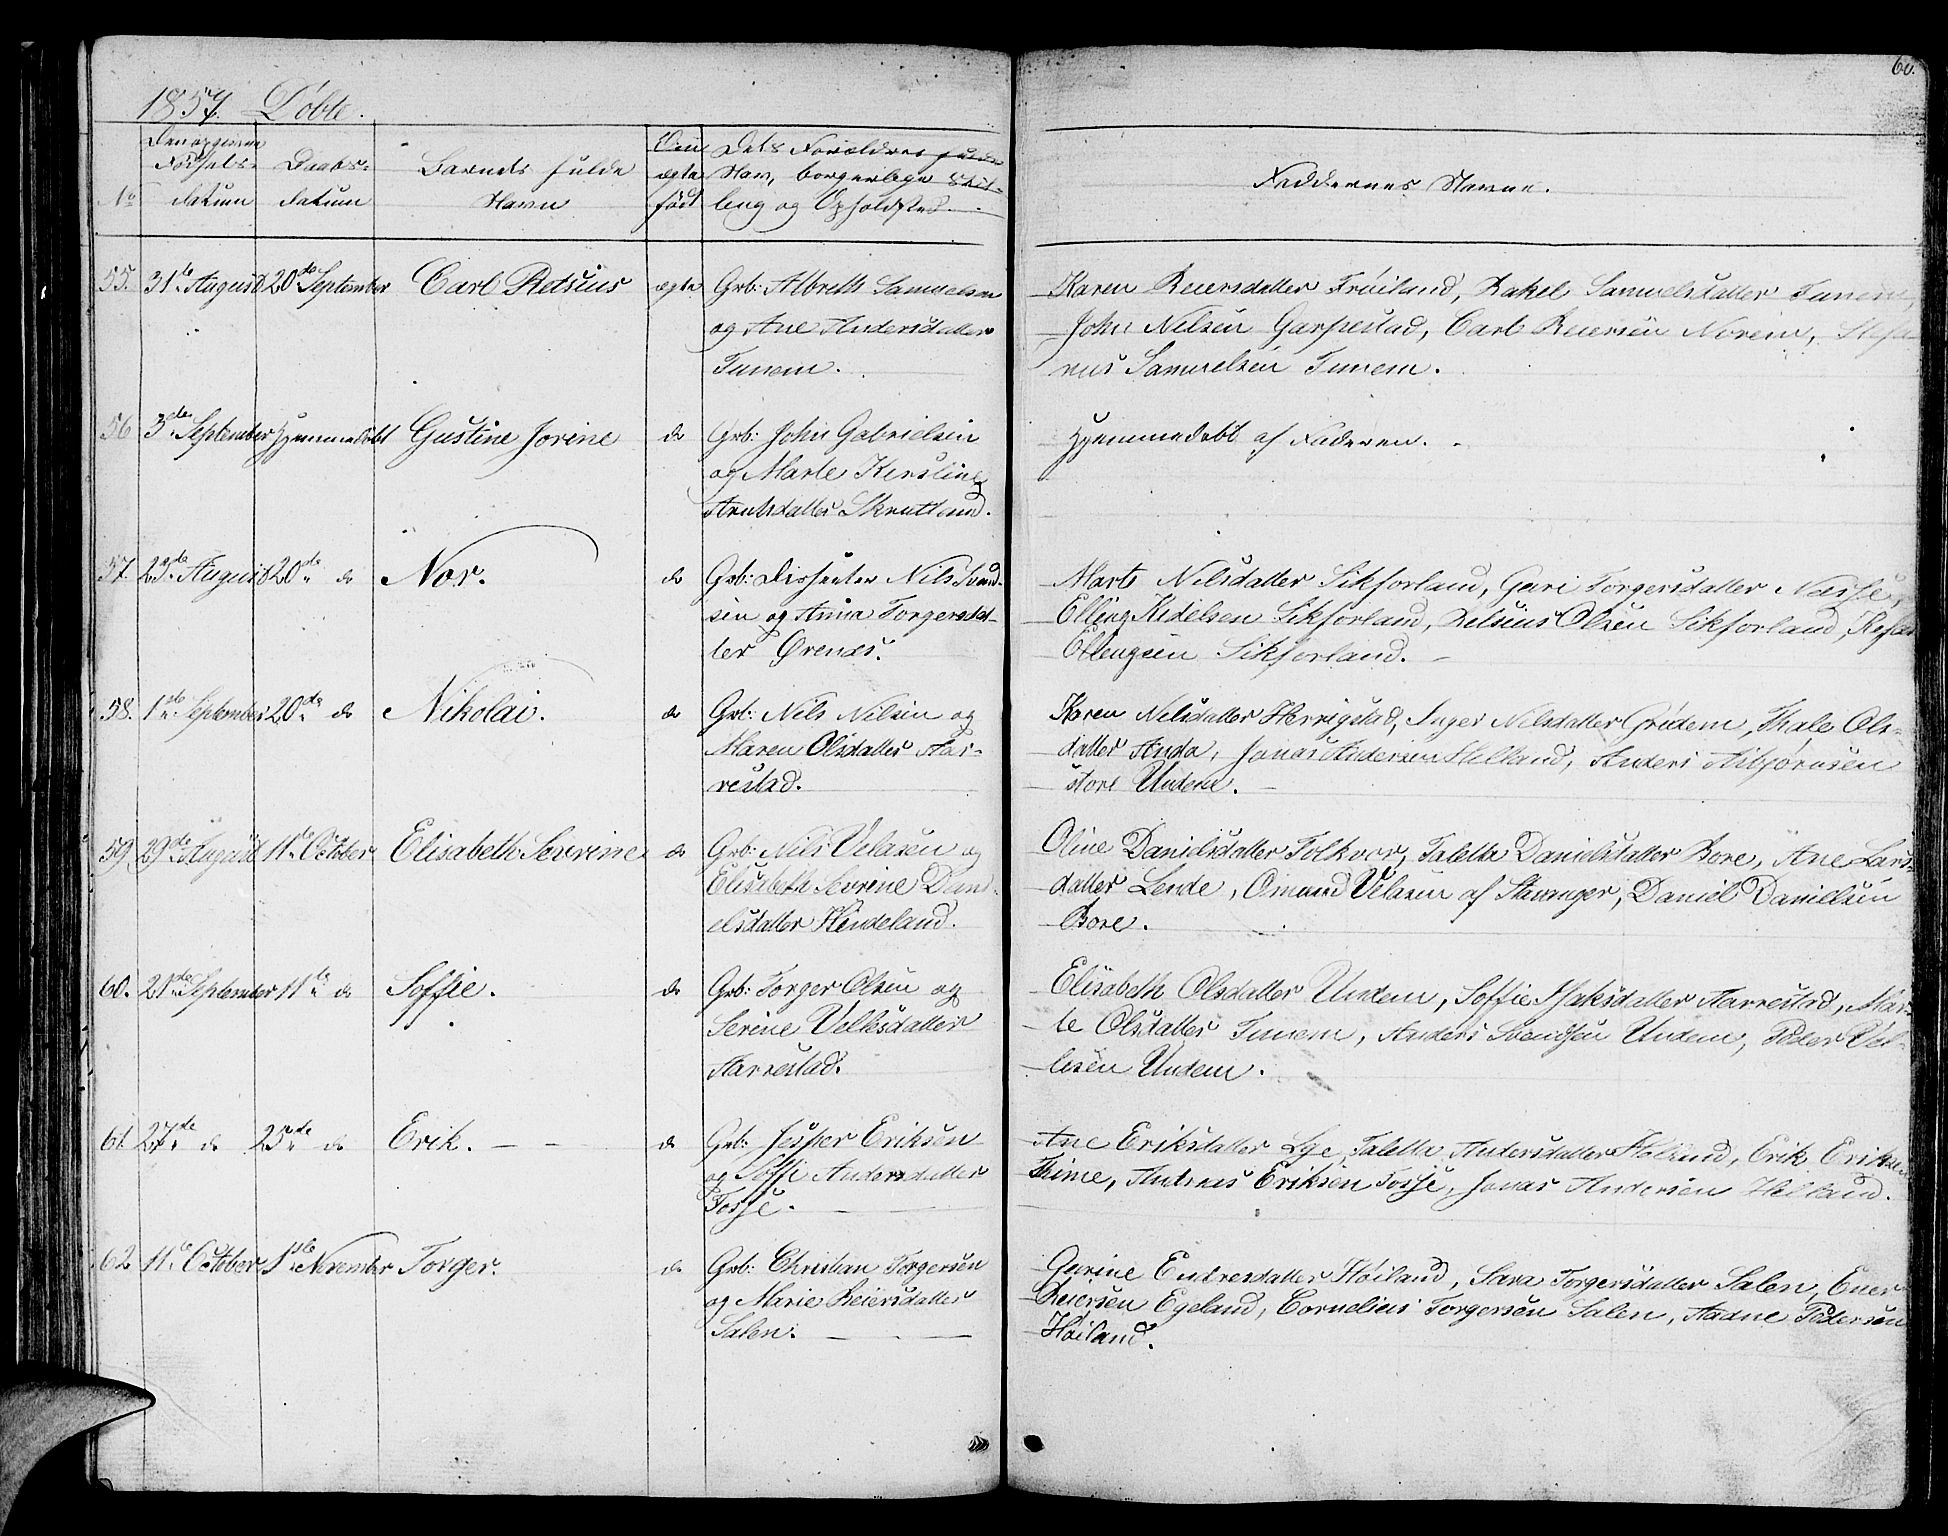 60.
1857. Døbte.
No
Den opgivne Fødsels-datum
Daabs-datum
Barnets fulde Navn
Om ægte født
Dets Forældres fulde Navn, borgerlige Stilling og Opholdsted.
Faddernes Navne.
55. 31te August 20de September Carl Retsius ægte Grb: Albrett Samuelsen
og Ane Andersdatter
Tunem.
Karen Reiersdatter Frøiland, Rakel Samuelsdatter Tunem,
John Nilsen Garpestad, Carl Reiersen Norem, Stefa
nus Samuelsen Tunem.
56 3de September Hjemmedøbt Gustine Jorine do Grb: John Gabrielsen
og Marte Kirstine
Skrutland.
Hjemmedøbt af Faderen.
57. 23de August 20de do Nor. do Grb: Dissenter Nils Svend-
sen og Anna Torgersdat-
ter Ørenes.
Marte Nilsdatter Sikforland, Guri Torgersdatter Næsse,
Elling Kidelsen Sikforland, Olsen Sikforland,
Ellengsen Sikforland.
58. 1ste September 20de do Nikolai. do Grb: Nils Nilsen og
Maren Olsdatter Aar-
restad.
Karen Nilsdatter Herrigstad, Inger Nilsdatter Grüdem, Thale Ols-
datter Anda, Jonas Andersen Helland, Anders Asbjørnsen
store Undem.
59. 29de August 11te October Elisabeth Severine do Grb: Nils Velasen og
Elisabeth Sevrine Dani-
elsdatter Hindeland.
Oline Danielsdatter Folkvor, Taletta Danielsdatter Bore, Ane Lars-
datter Lende, Omund Velasen af Stavanger, Daniel Danielsen
Bore.
60. 21de September 11te do Soffie. do Grb: Torger Olsen og
Serine Velksdatter
Aarrestad.
Elisabeth Olsdatter Undem, Soffie Isaksdatter Aarrestad, Mar-
te Olsdatter Tunem, Anders Svendsen Undem, Peder Vel-
lesen Undem.
61. 27de do 25de do Erik. do Grb: Jesper Eriksen
og Soffi Andersdatter
Fosse.
Ane Eriksdatter Lye, Taletta Andersdatter Høland, Erik Eriksen
Time, Andreas Eriksen Fosse, Jonas Andersen Helland.
62 11te October 1ste November Torger. do Grb: Christian Torgersen
og Marie Reiersdatter
Salen.
Gurine Endresdatter Høiland, Sara Torgersdatter Salen, Ener
Reiersen Egeland, Cornelius Torgersen Salen, Aadne Pedersen
Høiland.